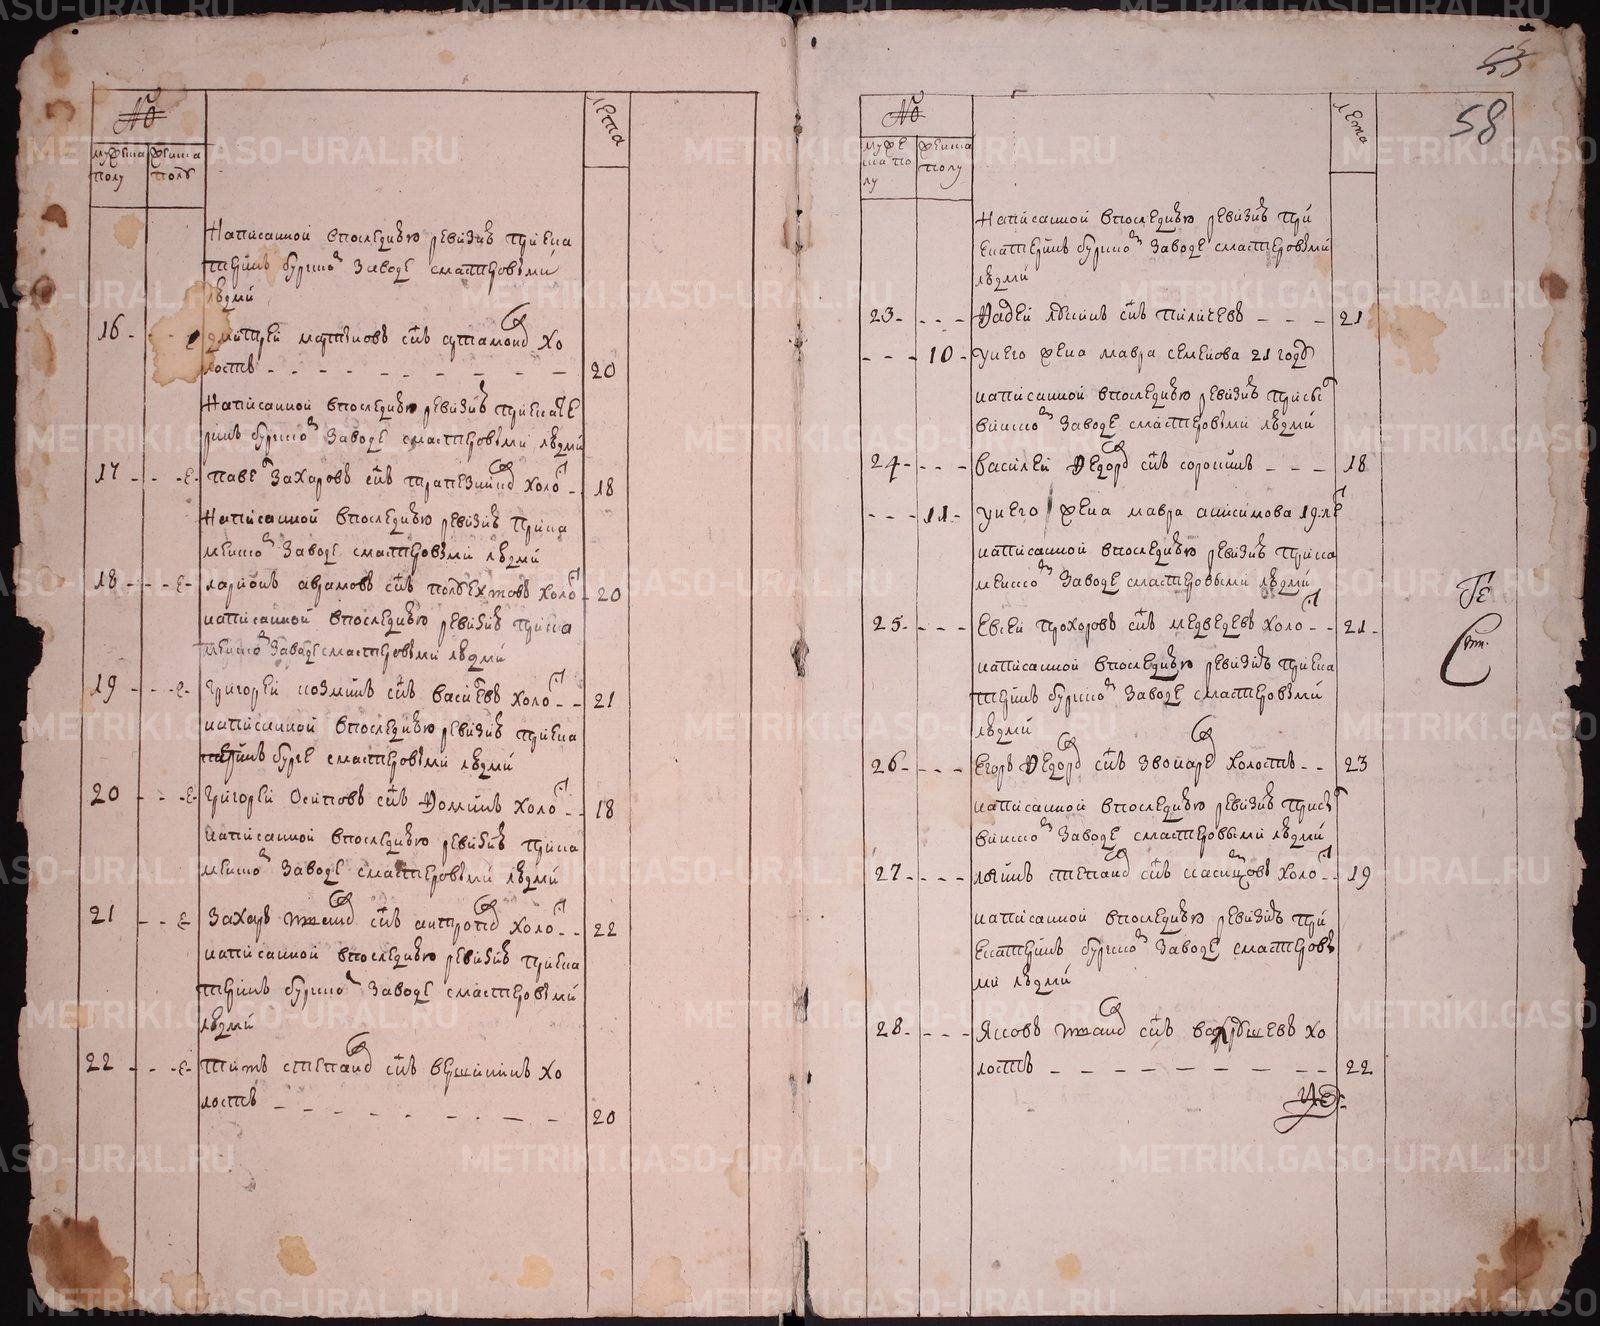 №
мужеска полу
женска полу
лета
написанной впоследнюю ревизию приека
терин бурхско заводе смастеровыми
людми
16 - - - дмитрей мартыновъ снъ артамоно хо
лостъ - - - - - - - - - - 20
написанной впоследнюю ревизию приекате
рин бурхско заводе смастеровыми людми
17 - - - Е - паве захаровъ снъ трапезнико холо - 18
написанной впоследнюю ревизию прика
менско заводе смастеровыми людми
18 - - - Е - ларионъ аврамовъ снъ полуехтовъ холо - 20
написанной впоследнюю ревизию прика
менско заводе смастеровыми людми
19 - - - Е - григорей козминъ снъ васиевъ холо - - 21
написанной впоследнюю ревизию приека
теринъ бурхе смастеровыми людми
20 - - - Е - григорей осиповъ снъ фоминъ холо - - 18
написанной впоследнюю ревизию прика
менско заводе смастеровыми людми
21 - - Е захаръ снъ антропо холо - - 22
написанной впоследнюю ревизию приека
терин бурхско заводе смастеровыми
людми
22 - - - Е - титъ степано снъ вершининъ хо
лостъ - - - - - - - - 20
55
58
№
мужеска полу
женска полу
лета
написанной впоследнюю ревизию при
екатерин бурхско заводе смастеровыми
людми
23 - - - - фадей снъ пиличевъ - - - 21
- - - 10 - унего жена мавра семенова 21 году
написанной впоследнюю ревизию присы
винско заводе смастеровыми людми
24 - - - - василей федоро снъ сорокинъ - - - 18
- - - 11 - унего жена мавра анисимова 19 ле
написанной впоследнюю ревизию прика
менско заводе смастеровыми людми
25 - - - - евсей прохоровъ снъ медведевъ холо - - 21 -
написанной впоследнюю ревизию приека
терин бурхско заводе смастеровыми
людми
26 - - - - егоръ федоро снъ звонаре холостъ - - 23
написанной впоследнюю ревизию присы
винско заводе смастеровыми людми
27 - - - - степано снъ холо - - 19
написанной впоследнюю ревизию при
екатерин бурхско заводе смастеровы
ми людми
28 - - - - яковъ снъ хо
лостъ - - - - - - - - 22